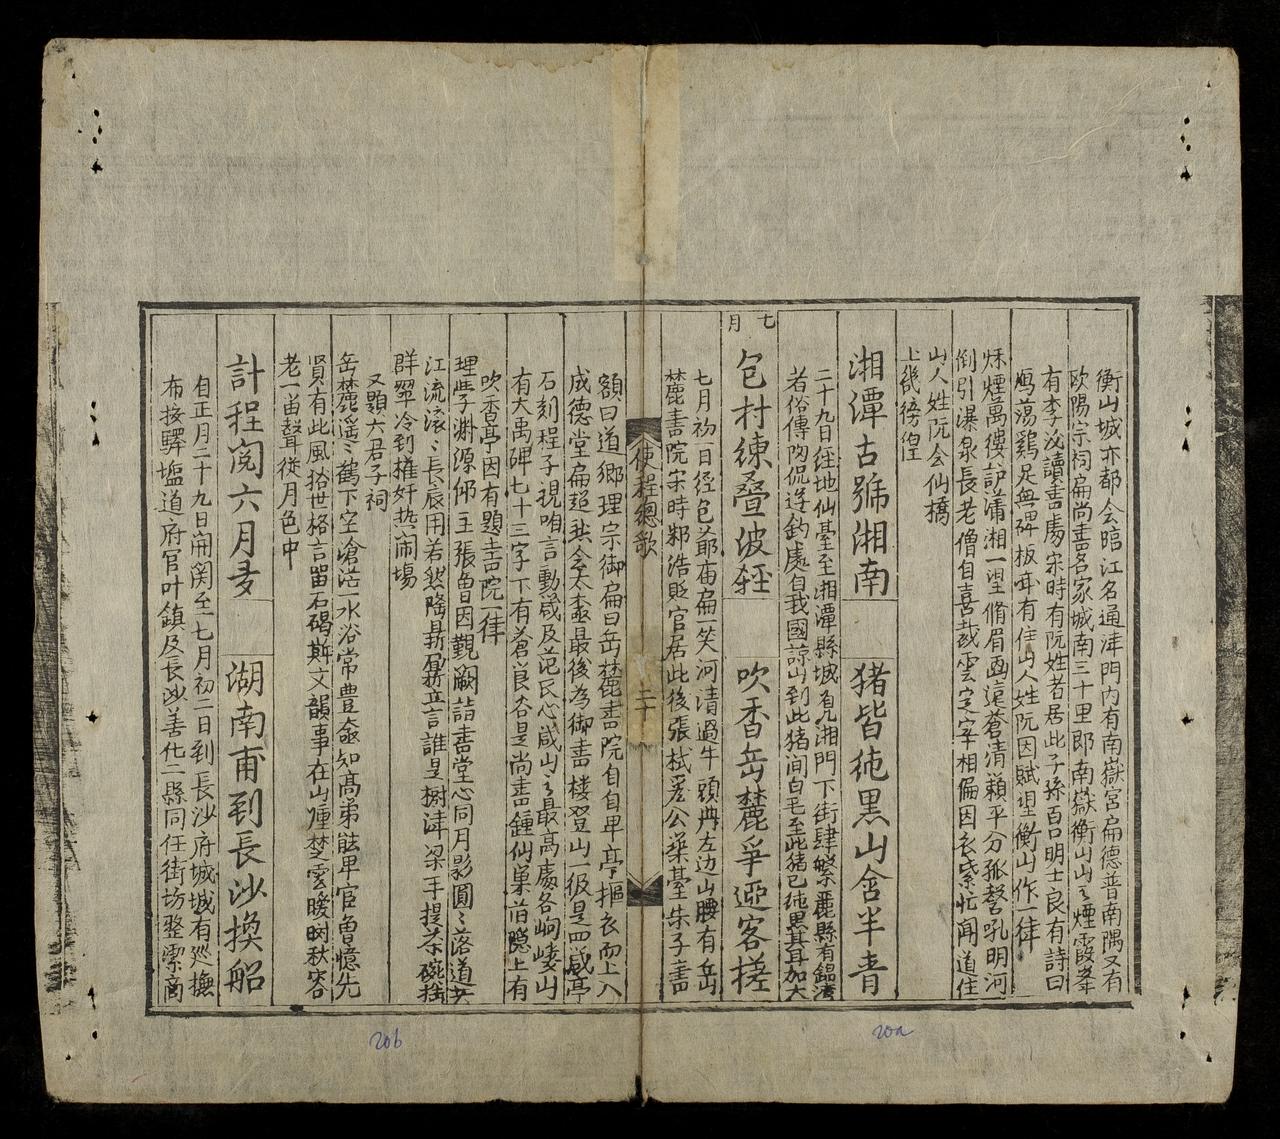 衡山城亦都會臨江名通津門内有南嶽宮扁德普南隅又有
歐陽宗祠扁尚書名家城南三十里即南嶽衡山山之煙霞峯
有李泌讀書處宋時有阮姓者居此子孫百口明士良有詩曰
鴈蕩雞足無碑板
有住山人姓阮因賦望衡山作一律
烁煙萬縷
蒲湘一望脩眉画遠蒼清籟平分孤磬吼明河
倒引瀑泉長老僧自喜
雲定宰相偏因衣紫忙闻道住
山人姓阮会仙橋
上幾徬徨
湘潭古號湘南
猪皆純黒山舍半青
二十九日徃地仙臺至湘潭縣城有九湘門下街肆繁麗縣有
若俗傳
處自我國諒山到此猪间白毛至此猪已純黒其耳加大
七月
包村練叠波軽
吹香岳麓爭迎客搓
七月初一日徑包爺庙扁一笑河清過牛頭冉左边山腰有岳
麓書院宋時鄒浩貶官居此後張栻爲公築臺朱子書
使程總歌
二十
額曰道鄉理宗御扁曰岳麓書院自自卑亭摳衣而上入
成德堂扁超然会太極最後為御書楼登山一级是四箴亭
石刻程子視咱言動箴及范氏心箴山之最高處各峋嶁山
有大禹碑七十三字下有蒼筤谷是尚書鍾仙巢
隐上有
吹香亭因有題書院一律
理学渊源仰王張鲁因觐闕詣書堂心同月影圓圓落道共
江流滚滚長辰用若然隆
立言誰是
津梁手提茶碗
群翠冷到權奸热闹場
又題六君子祠
岳麓遥遥鶴下空滄茫一水浴常豊
知高弟䏻卑官鲁憶先
賢有此風俗世格言畱石碣斯文韻事在山
楚雲暧
秋容
老一笛聲徙月色中
計程閲六月
湖南甫到長沙換船
自正月二十九日開関至七月初二日到長沙府城城有廵撫
布按驛塩道府官叶鎮及長沙善化二縣同任街坊整潔商
20b
20a